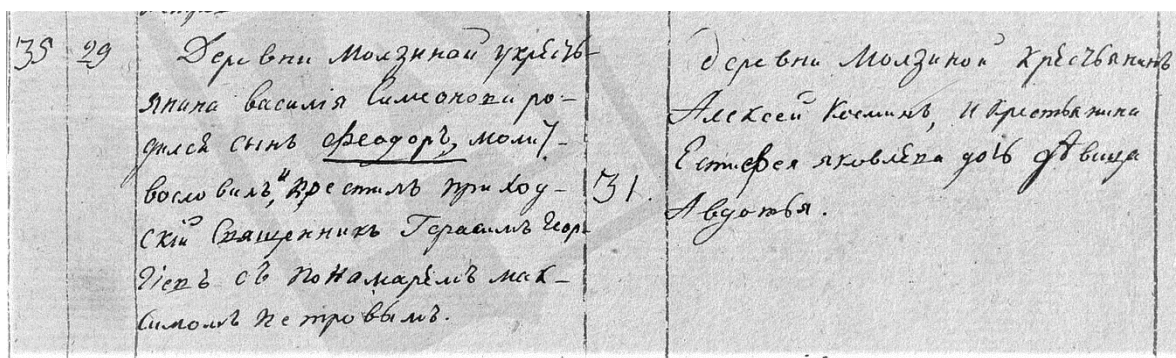 35 29 Деревни Молзиной у кресть-
янина Василія Симеонова ро-
дился сынъ Феодоръ, молит-
вословилъ, и крестилъ приход-
скій Священникъ Герасимъ Геор-
гіевъ съ пономаремъ Мак-
симомъ Петровымъ.
31.
деревни Молзиной крестьянинъ
Алексей Косминъ, и крестьянина
Естифея яковлева дочь девица
Авдотья.